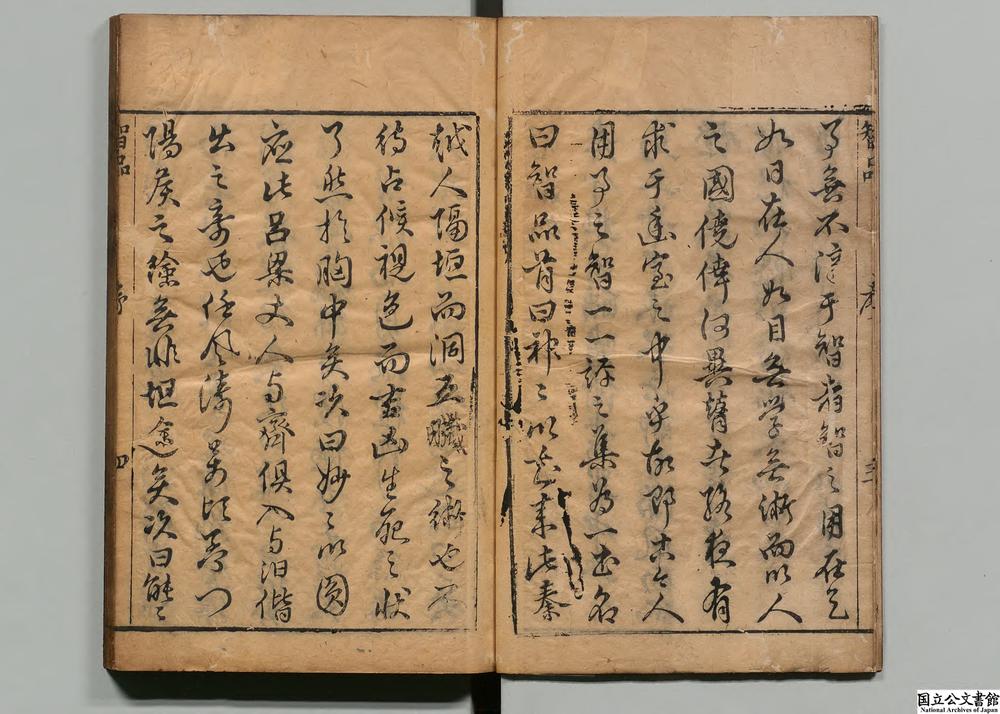 智品 序 三
事無不淂于智者智之用在天
如日在人如目無學無術而以人
之國僥倖何異瞽者路夜有
求于室之中乎故即古今人
用事之智一一評之集為一書名
曰智品首曰神〻以知来此秦
越人隔垣而洞五臟之術也不
待占候視色而吉凶生死之狀
了然於胸中矣次曰妙〻以圓
應此呂梁丈人与齊俱入与汩偕
出之奇也任風濤萬頃吾
陽侯之險無非坦途矣次曰能〻
智品 序 四
国立公文書館
National Archives of Japan